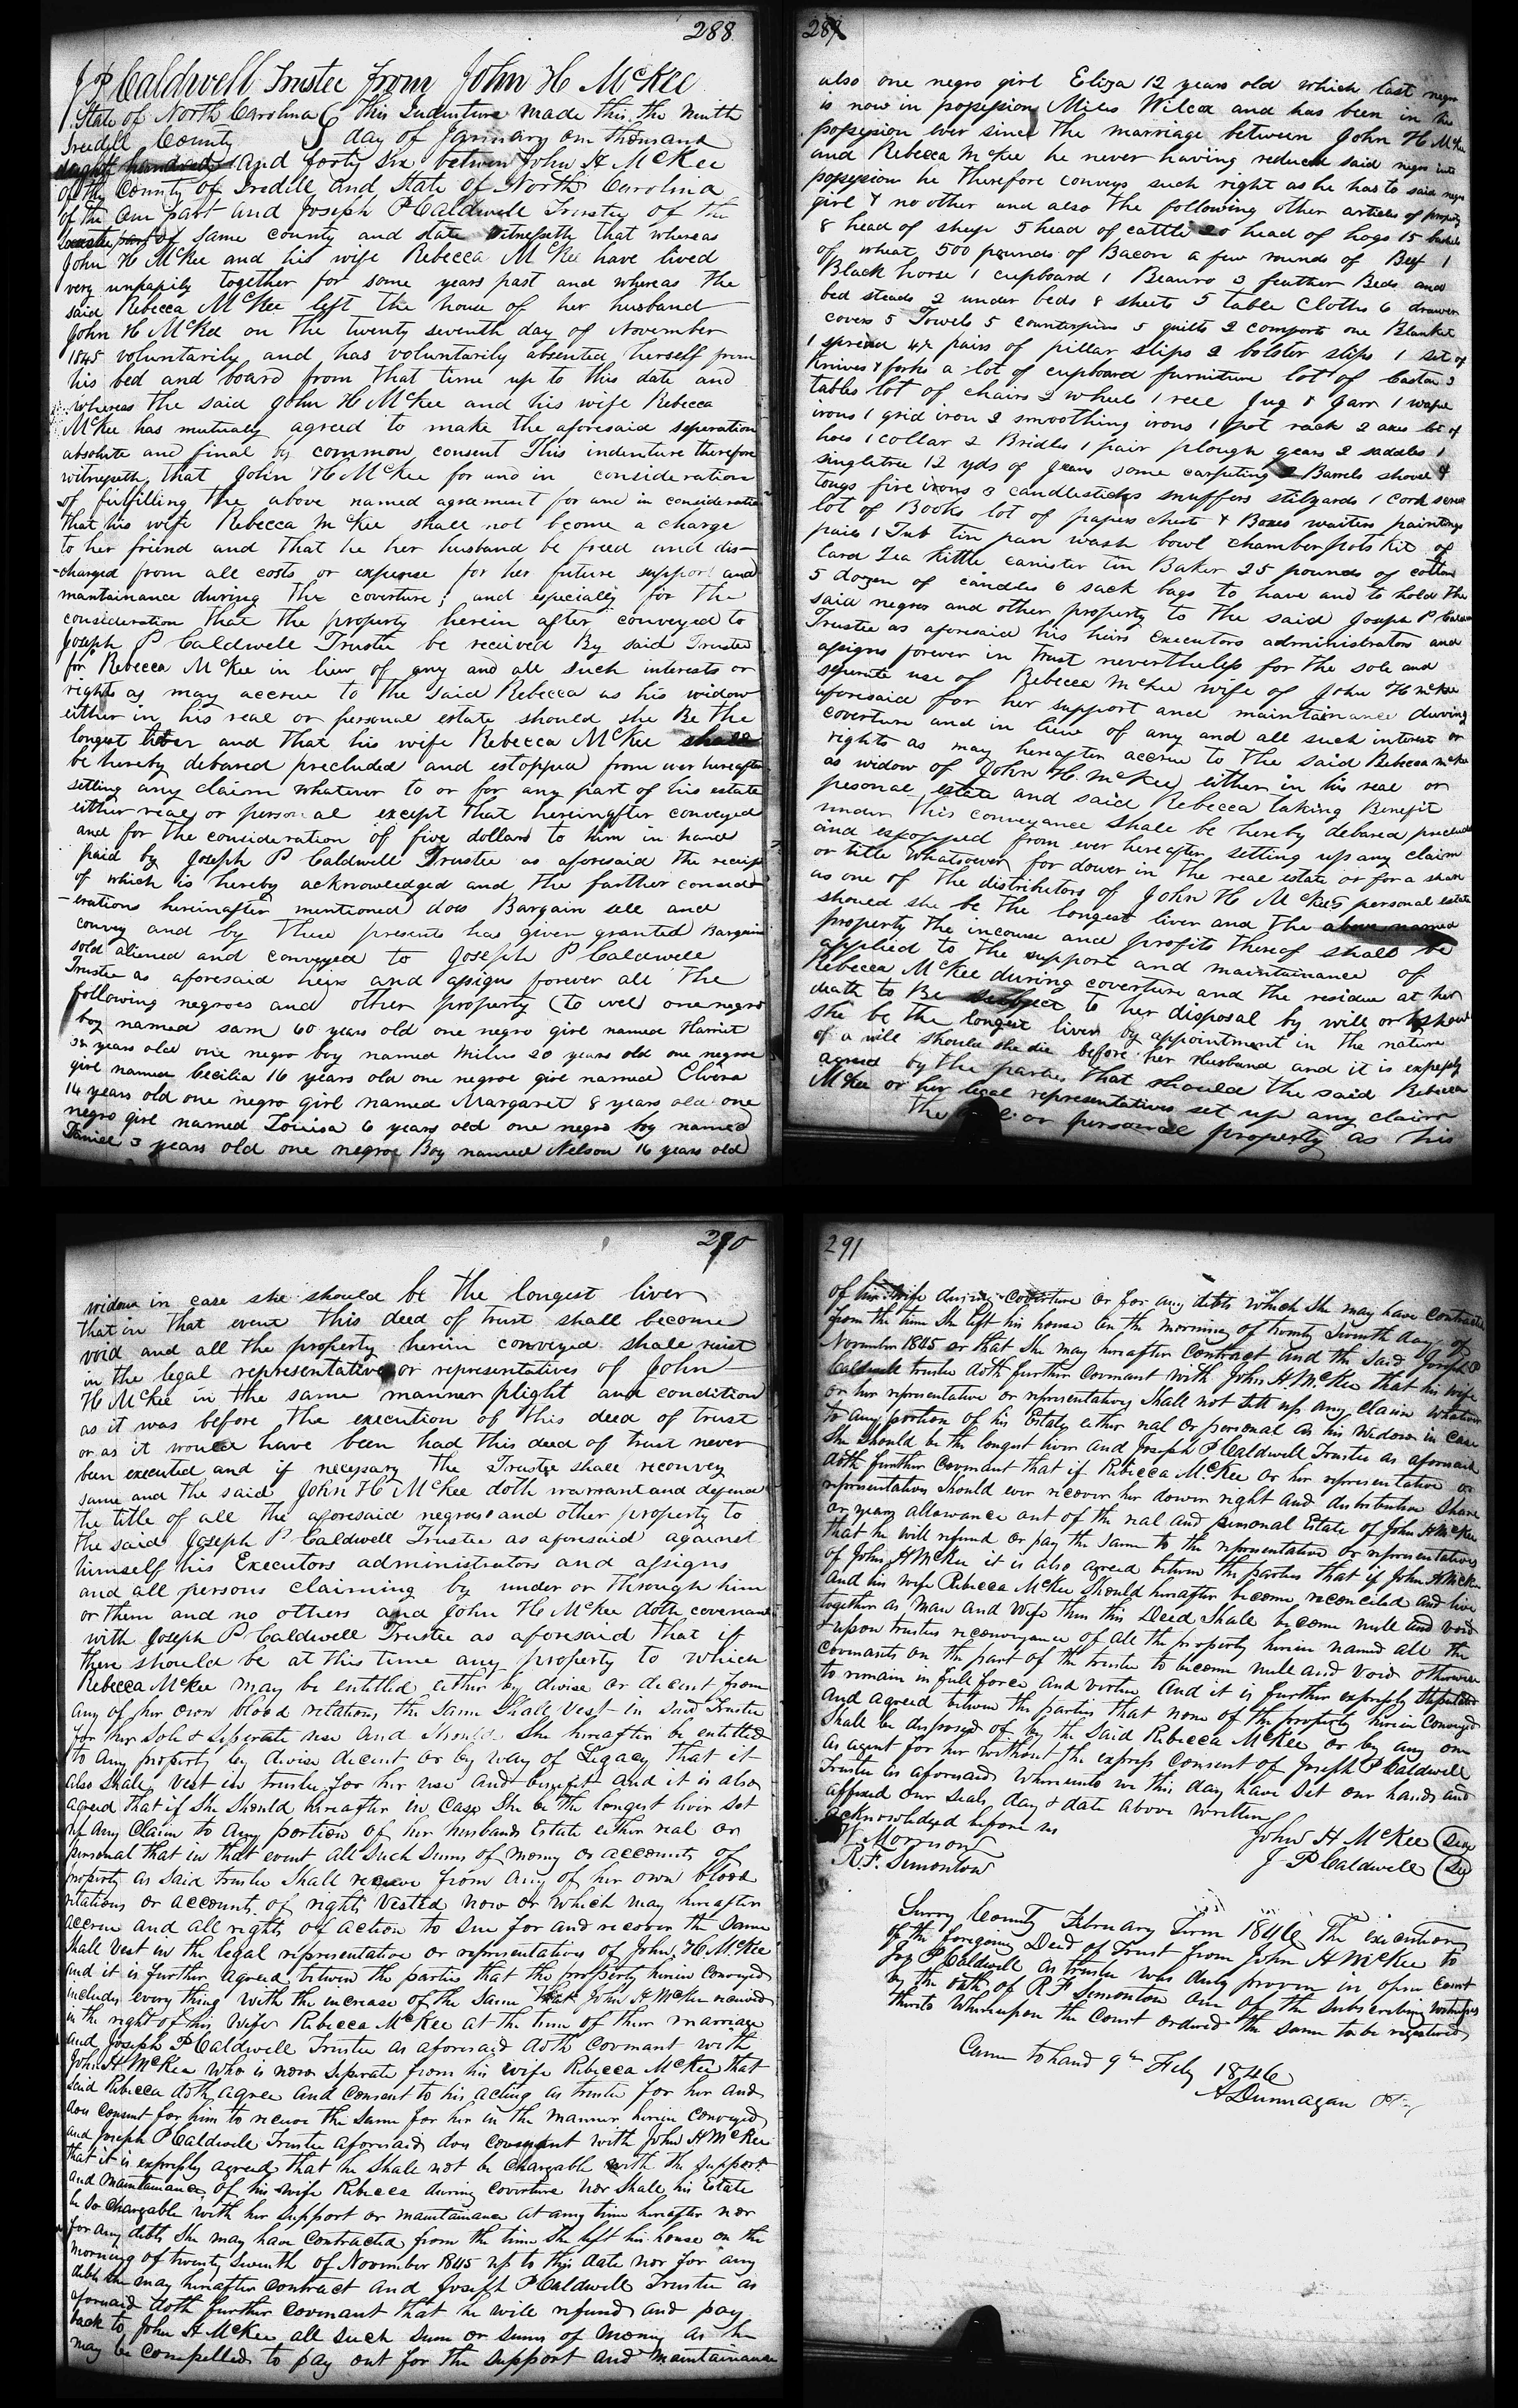 288
J P Caldwell Trustee from John H McKee
State of North Carolina This Indenture made this the ninth
Iredell County day of January one thousand
eight hundred and forty six between John H McKee
of the County of Iredell and State of North Carolina
of the one part and Joseph P Caldwell Trustey of the
part of same county and state witnesseth that whereas
John H McKee and his wife Rebecca McKee have lived
very unhapily together for some years past and whereas the
said Rebecca McKee left the house of her husband
John H McKee on the twenty seventh day of November
1845 voluntarily and has voluntarily absented herself from
his bed and board from that time up to this date and
whereas the said John H McKee and his wife Rebecca
McKee has mutualy agreed to make the aforesaid seperation
absolute and final by common consent This indenture therefore
witnesseth that John H McKee for and in consideration
of fulfilling the above named agreement for and in consideration
that his wife Rebecca McKee shall not become a charge
to her friend and that he her husband be freed and dis-
-charged from all costs or expense for her future support and
maintainance during the coverture; and especially for the
consideration that the property herein after conveyed to
Joseph P Caldwell Trustee be received By said Trustee
for Rebecca McKee in lieu of any and all such interests or
rights as may accrue to the said Rebecca as his widow
either in his real or personal estate should she Be the
longest liver and that his wife Rebecca McKee shall
be hereby debared precluded and estopped from ever hereafter
setting any claim whatever to or for any part of his estate
either real or personal except that hereinafter conveyed
and for the consideration of five dollars to him in hand
paid by Joseph P Caldwell Trustee as aforesaid the receipt
of which is hereby acknowledged and the farther consid-
-erations hereinafter mentioned does Bargain sell and
convey and by these presents has given granted Bargain
sold aliened and conveyed to Joseph P Caldwell
Trustee as aforesaid heirs and assigns forever all the
following negroes and other property (to wit) one negro
boy named sam 60 years old one negro girl named Harriet
38 years old one negro boy named Milus 20 years old one negroe
girl named Cecilia 16 years old one negroe girl named Elvira
14 years old one negro girl named Margaret 8 years old one
negro girl named Louisa 6 years old one negro boy named
Daniel 3 years old one negroe Boy named Nelson 16 years old
289
also one negro girl Eliza 12 years old which last negro
is now in possession Miles Wilcox and has been in his
possession ever since the marriage between John H McKee
and Rebecca McKee he never having reduced said negro into
possession he therefore conveys such right as he has to said negro
girl & no other and also the following other articles of property
8 head of sheep 5 head of cattle 20 head of hogs 15 bushels
of wheat 500 pounds of Bacon a few rounds of Beef 1
Black horse 1 cupboard 1 Beauro 3 feather Beds and
bed steads 2 under beds 8 sheets 5 table Cloths 6 drawer
covers 5 Towels 5 counterpins 5 quilts 2 comports one Blanket
1 spread 4 pairs of pillar slips 2 bolster slips 1 set of
Knives & forks a lot of cupboard furniture lot of Caston 3
tables lot of chairs 2 wheels 1 reel Jug & Jarr 1 wafle
irons 1 grid iron 2 smoothing irons 1 pot rack 2 axes lot of
hoes 1 collar 2 Bridles 1 pair plough gears 2 saddles 1
singletree 12 yds of Jeans some carpeting 2 Barrels shovel &
tongs fire irons 3 candlesticks snuffers stilyards 1 Cork screw
lot of Books lot of papers chest & Boxes waiters paintings
pails 1 Tub tin pan wash bowl chamber pots Kit of
Lard Tea Kittle canister tin Baker 25 pounds of cotton
5 dozen of candles 6 sack bags to have and to hold the
said negroes and other property to the said Joseph P Caldwell
Trustee as aforesaid his heirs executors administrators and
assigns forever in trust nevertheless for the sole and
seperate use of Rebecca McKee wife of John H McKee
aforesaid for her support and maintainance during
coverture and in lieu of any and all such interest or
rights as may hereafter accrue to the said Rebecca McKee
as widow of John H. McKee either in his real or
pesonal estate and said Rebecca taking Benefit
under this conveyance shall be hereby debared preclude
and estopped from ever hereafter setting up any claim
or title whatsoever for dower in the real estate or for a share
as one of the distributors of John H McKees personal estate
should she be the longest liver and the above named
property the income and profits thereof shall be
applied to the support and maintainance of
Rebecca McKee during coverture and the residue at her
death to Be subject to her disposal by will or should
she be the longest liver by appointment in the nature
of a will should she die before her Husband and it is expressly
agreed by the parties that should the said Rebecca
McKee or her legal representatives set up any claim
the or personal property as his
290
widow in case she should be the longest liver
that in that event this deed of trust shall become
void and all the property herein conveyed shall revist
in the legal representative or representatives of John
H McKee in the same manner plight and condition
as it was before the execution of this deed of trust
or as it would have been had this deed of trust never
been executed and if necessary the Trustee shall reconvey
same and the said John H McKee doth warrant and defend
the title of all the aforesaid negroes and other property to
the said Joseph P Caldwell Trustee as aforesaid against
himself his Executors administrators and assigns
and all persons claiming by under or through him
or them and no others and John H McKee doth covenant
with Joseph P Caldwell Trustee as aforesaid that if
there should be at this time any property to which
Rebecca McKee may be entitled either by devise or decent from
any of her own blood relations the same shall vest in said Trustee
for her sole & seperate use and should she hereafter be entitled
to any property by devise decent or by way of Legacy that it
also shall vest in trustee for her use and benefit and it is also
agreed that if she should hereafter in case she be the longest liver set
up any claim to any portion of her husbands Estate either real or
personal that in that event all such sums of money or accounts of
property as said trustee shall receive from any of her own blood
relations or accounts of rights vested now or which may hereafter
accrue and all rights of action to sue for and recover the same
shall vest in the legal representative or representatives of John H McKee
and it is further agreed between the parties that the property herein conveyed
includes every thing with the increase of the same that John H McKee received
in the right of his Wife Rebecca McKee at the time of their marriage
and Joseph P Caldwell Trustee as aforesaid doth covenant with
John H McKee who is now seperate from his wife Rebecca McKee that
said Rebecca doth agree and consent to his acting as trustee for her and
does consent for him to receive the same for her in the manner herein conveyed
and Joseph P Caldwell Trustee aforesaid does covenant with John H McKee
that it is expressly agreed that he shall not be chargable with the support
and maintainance of his wife Rebecca during coverture nor shall his Estate
be so chargable with her support or maintainance at any time hereafter nor
for any debts she may have contracted from the time she left his house on the
morning of twenty seventh of November 1845 up to this date nor for any
debts she may hereafter contract and Joseph P Caldwell Trustee as
aforesaid doth further covenant that he will refund and pay
back to John H McKee all such sum or sums of money as he
may be compelled to pay out for the support and maintainance
291
of his wife during coverture or for any debts which she may have contracted
from the time she left his house on the morning of twenty seventh day of
November 1845 or that she may hereafter contract and the said Joseph P
Caldwell trustee doth further covenant with John H. McKee that his wife
or her representative or representatives shall not sett up any claim whatever
to any portion of his Estate either real or personal as his widow in case
she should be the longest liver and Joseph P Caldwell Trustee as aforesaid
doth further covenant that if Rebecca McKee or her representative or
representatives should ever recover her dower right and distributive share
or years allowance out of the real and personal Estate of John H McKee
that he will refund or pay the same to the representative or representatives
of John H McKee it is also agreed between the parties that if John H McKee
and his wife Rebecca McKee should hereafter become reconciled and live
together as man and wife then this Deed shall become null and void
& upon trustees reconveyance of all the property herein named all the
covenants on the part of the trustee to become null and void otherwise
to remain in full force and virtue and it is further expressly stipulated
and agreed between the parties that none of the property herein conveyed
shall be disposed of by the said Rebecca McKee or by any one
as agent for her without the express consent of Joseph P Caldwell
Trustee as aforesaid whereunto we this day have set our hands and
affixed our seals day & date above written
Acknowledged before us
Morrison John H McKee Seal
R. F. Simonton J P Caldwell Seal
Surry County February Term 1846 The execution
of the foregoing Deed of Trust from John H McKee to
Jos P Caldwell as trustee was duly proven in open court
by the oath of R F Simonton one of the subscribing witnesses
thereto whereupon the Court ordered the same to be registered
Came to hand 9th Feby 1846
A Dunnagan